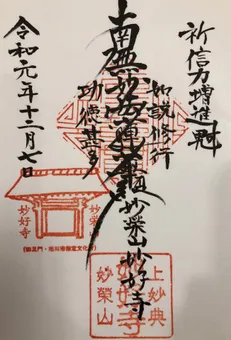 祈信力増進
如説修行
南無妙法蓮華経
功徳甚多
妙栄山妙好寺
令和元年十二月七日
妙栄山
妙好寺
上妙典
妙好寺
妙榮山